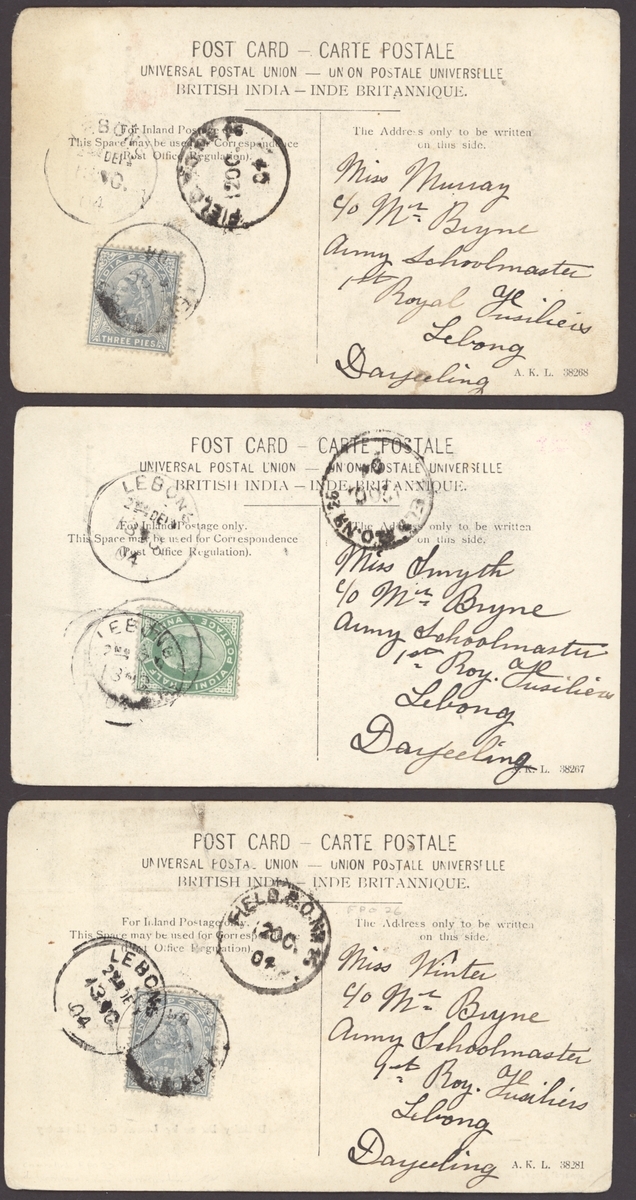 POST CARD — CARTE POSTALE
UNIVERSAL POSTAL UNION — UNION POSTALE UNIVERSELLE
BRITISH INDIA — INDE BRITANNIQUE.
For Inland Postage
This Space may be used for Correspondence
(Post Office Regulation).
The Address only to be written
on this side.
LEBONG
FIELD
12 OC
04
THREE PIES
Miss Murray
c/o Mr Bryne
Army Schoolmaster
1st Royal Fusiliers
Lebong
Darjeeling
A. K. L. 38268
POST CARD — CARTE POSTALE
UNIVERSAL POSTAL UNION — UNION POSTALE UNIVERSELLE
BRITISH INDIA — INDE BRITANNIQUE.
For Inland Postage only.
This Space may be used for Correspondence
(Post Office Regulation).
The Address only to be written
on this side.
LEBONG
2ND DEL
13
04
P.O. No 26
LEBONG
INDIA POSTAGE
HALF ANNA
Miss Smyth
c/o Mr Bryne
Army Schoolmaster
1st Roy. Fusiliers
Lebong
Darjeeling
A. K. L. 38267
POST CARD — CARTE POSTALE
UNIVERSAL POSTAL UNION — UNION POSTALE UNIVERSELLE
BRITISH INDIA — INDE BRITANNIQUE.
For Inland Postage only.
This Space may be used for Correspondence
(Post Office Regulation).
FPO 26
The Address only to be written
on this side.
FIELD. P.O. No
12 OC.
04
LEBONG
2ND DEL
13 OC
04
Miss Winter
c/o Mr Bryne
Army Schoolmaster
1st Roy. Fusiliers
Lebong
Darjeeling
A. K. L. 38281